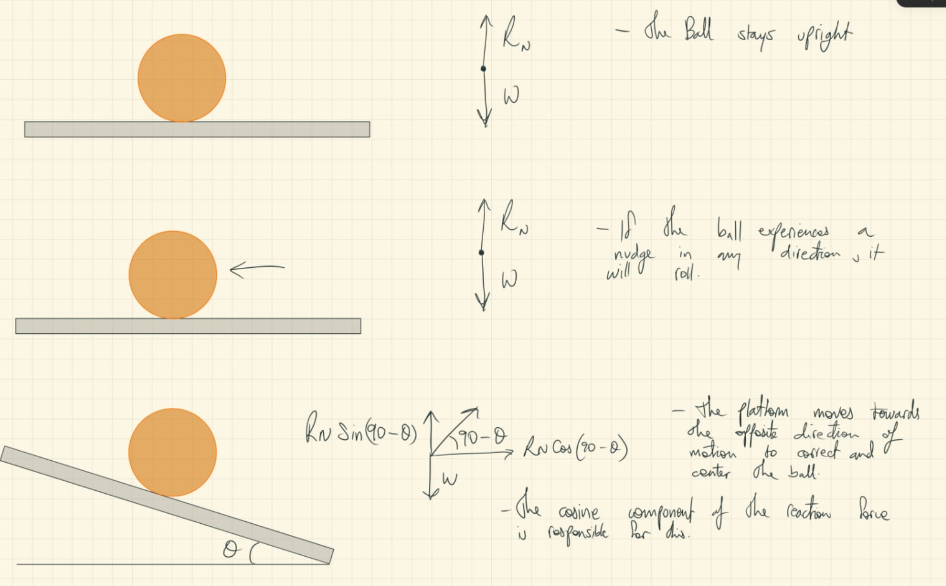 R_N
W
- The Ball stays upright
R_N
W
- If the ball experiences a
nudge in any direction, it
will roll.
R_N Sin(90-θ)
90-θ
R_N Cos(90-θ)
W
θ
- The platform moves towards
the opposite direction of
motion to correct and
center the ball.
- The cosine component of the reaction force
is responsible for this.